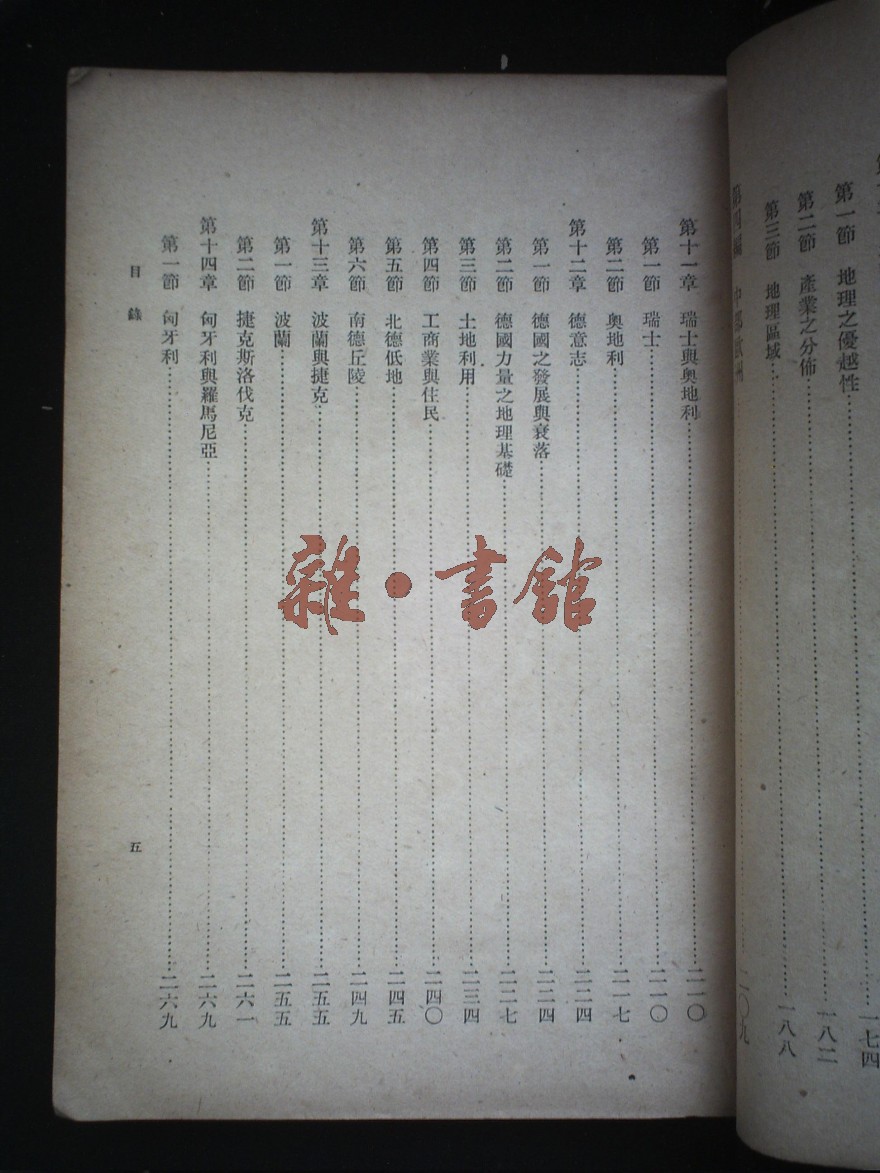 第一節　地理之優越性……一七四
第二節　產業之分佈……一八二
第三節　地理區域……一八八
第四編　中部歐洲……二〇九
第十一章　瑞士與奧地利……二一〇
第一節　瑞士……二一〇
第二節　奧地利……二一七
第十二章　德意志……二二四
第一節　德國之發展與衰落……二二四
第二節　德國力量之地理基礎……二二七
第三節　土地利用……二三四
第四節　工商業與住民……二四〇
第五節　北德低地……二四五
第六節　南德丘陵……二四九
第十三章　波蘭與捷克……二五五
第一節　波蘭……二五五
第二節　捷克斯洛伐克……二六一
第十四章　匈牙利與羅馬尼亞……二六九
第一節　匈牙利……二六九
目錄　五
雜·書館